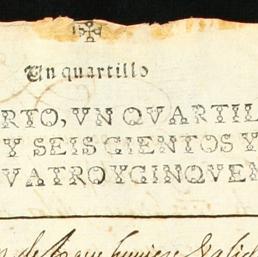 Un quartillo
RTO, VN QVARTIL
Y SEIS CIENTOS Y
VATROYCINQVEN